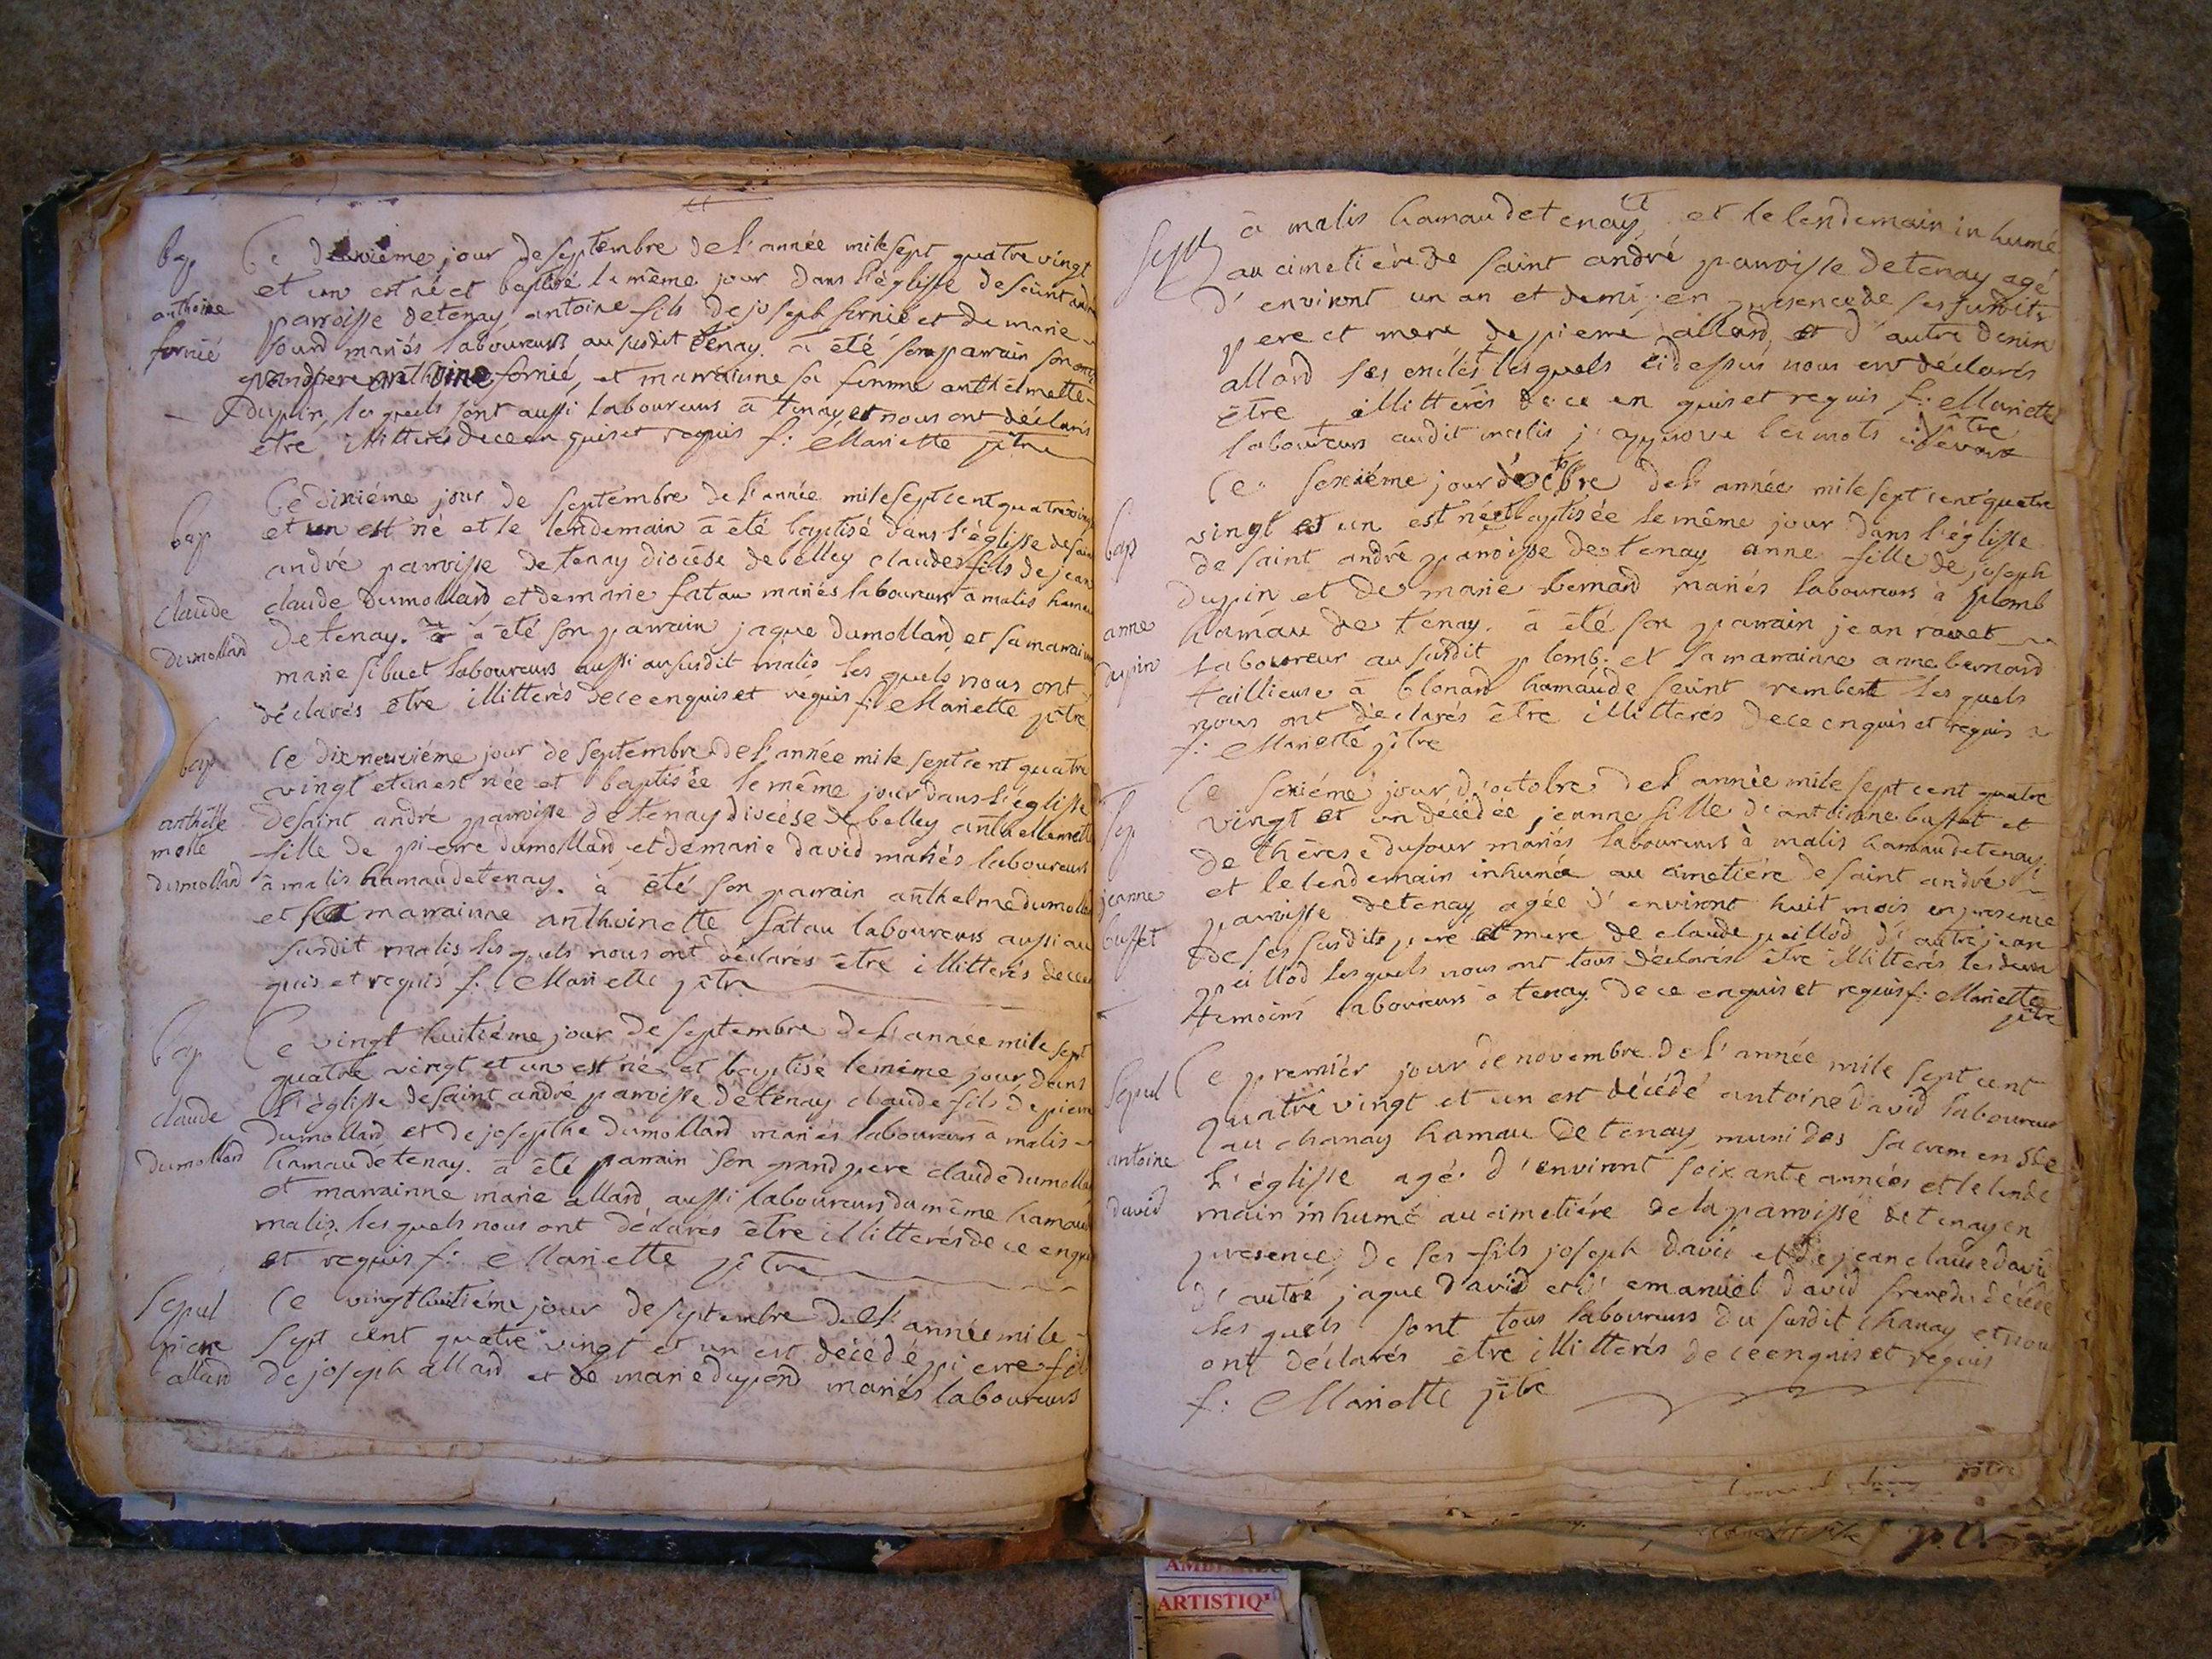 bap
anthoine
fornié
Ce deuxième jour de septembre de l'année mile sept quatre vingt
et un est né et baptisé le même jour dans l'églisse de saint andré
parroisse de tenay antoine fils de joseph fornié et de marie
sourd mariés laboureurs au susdit tenay. à été son parrain son
grandpere anthoine fornié, et marrainne sa femme anthelmette
dupin, les quels sont aussi laboureurs à tenay et nous ont déclarés
etre illitterés de ce en quis et requis f: Mariette ptre
bap
claude
dumollard
Ce dixiéme jour de septembre de l'année mile sept cent quatre vingt
et un est né et le lendemain à été baptisé dans l'églisse de saint
andré parroisse de tenay diocèse de belley claude fils de jean
claude Dumollard et de marie fatau mariés laboureurs à malis hamau
de tenay. à été son parrain jaque dumollard et sa marraine
marie sibuet laboureurs aussi au susdit malis les quels nous ont
déclarés être illitterés de ce enquis et réquis f: Mariette ptre
bap
anthelle
mette
dumollard
Ce dixneuviéme jour de septembre de l'année mile sept cent quatre
vingt et un est née et baptisée le même jour dans l'églisse
de saint andré parroisse de tenay diocèse de belley anthellemette
fille de pierre dumollard et de marie david mariés laboureurs
à malis hamau de tenay. à été son parrain anthelme dumollard
et sa marrainne anthoinette fatau laboureurs aussi au
susdit malis les quels nous ont déclarés être illitterés de ce en
quis et requis f: Mariette ptre
bap
claude
dumollard
Ce vingt huitiéme jour de septembre de l'année mile sept
quatre vingt et un est né et baptisé le même jour dans
l'églisse de saint andré parroisse de tenay claude fils de pierre
dumollard et de josepthe dumollard mariés laboureurs à malis
hamau de tenay. à été parrain son grand pere claude dumollard
et marrainne marie allard aussi laboureurs du même hamau
malis. les quels nous ont déclarés être illitterés de ce enquis
et requis f: Mariette ptre
Sepul
pierre
allard
Ce vingt huitiéme jour de septembre de l'année mile
sept cent quatre vingt et un est décédé pierre fils
de joseph allard et de marie dupond mariés laboureurs
sepul
à malis hamau de tenay, et le lendemain inhumé
au cimetière de saint andré parroisse de tenay agé
d'environt un an et demi; en presence de ses susdits
pere et mere de pierre allard, et d'autre denin
allard ses les quels ci dessus nous ont déclarés
être illitterés de ce en quis et requis f: Mariette ptre
laboureurs audit malis j'approuve les mots
bap
anne
dupin
Ce sexiéme jour d'octbre de l'année mile sept cent quatre
vingt et un est née et baptisée le même jour dans l'églisse
de saint andré parroisse de tenay anne fille de joseph
dupin et de marie bernard mariés laboureurs à plomb
hamau de tenay. à été son parrain jean ravet
laboureur au susdit plomb. et sa marrainne anne bernard
taillieuse à blonard hamau de saint rembert les quels
nous ont déclarés être illitterés de ce enquis et réquis
f: Mariette ptre
Sep
jeanne
buffet
Ce sexiéme jour d'octobre de l'année mile sept cent quatre
vingt et un décédée jeanne fille d'antoinne buffet et
de thèrese dufour mariés laboureurs à malis hamau de tenay.
et le lendemain inhumée au cimetiére de saint andré
parroisse de tenay agée d'environt huit mois en presence
de ses susdits pere et mere de claude peillod d'autre jean
peillod les quels nous ont tous déclarés être illitterés les deux
temoins laboureurs à tenay. de ce enquis et requis f: Mariette
ptre
Sepul
antoine
david
Ce premiér jour de novembre de l'année mile sept cent
quatre vingt et un est décédé antoine david laboureur
au chanay hamau de tenay, muni des sacremens de
l'églisse agé d'environt soixante années et le lende
main inhumé au cimetiére de la parroisse de tenay en
presence de ses fils joseph david et de jean claude david
d'autre jaque david et d'emanuel david frere du décédé
les quels sont tous laboureurs du susdit chanay et nous
ont déclarés être illitterés de ce enquis et requis
f: Mariette ptre
ptre
ARTISTIQ